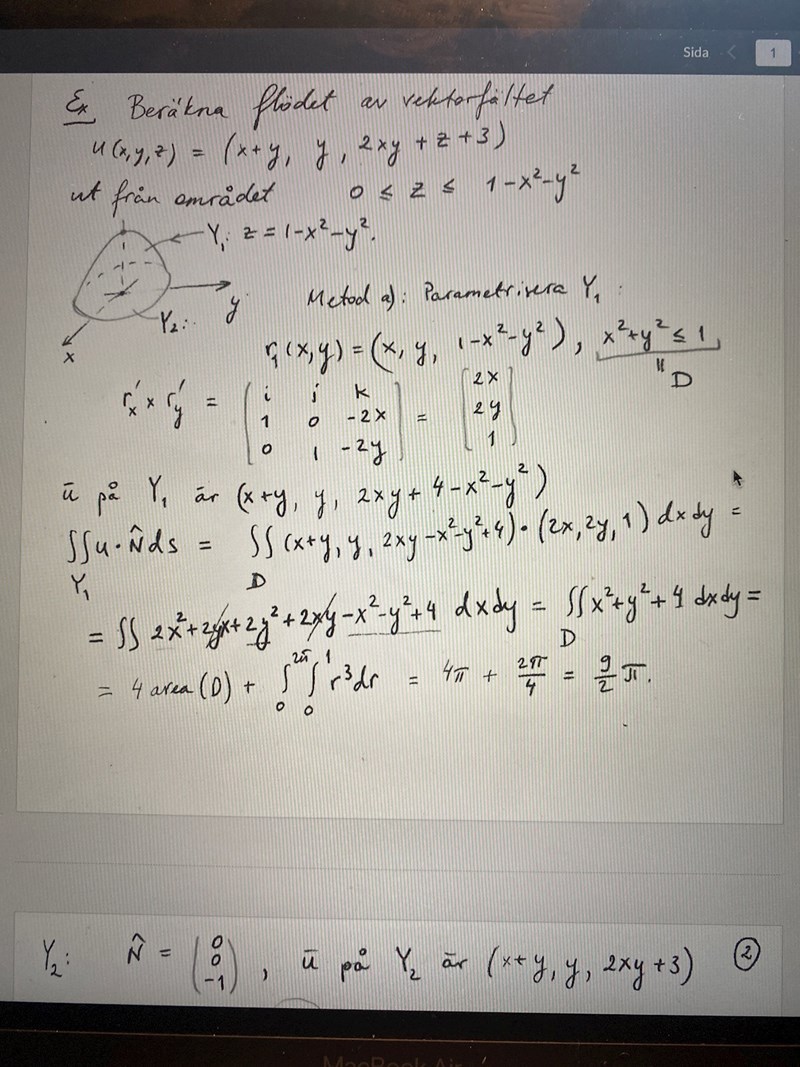 Sida < 1
Ex Beräkna flödet av vektorfältet
u(x,y,z) = (x+y, y, 2xy + z + 3)
ut från området 0 ≤ z ≤ 1-x²-y²
Y₁: z = 1-x²-y².
y
Y₂:
x
Metod a): Parametrisera Y₁:
r₁(x,y) = (x, y, 1-x²-y²), x²+y² ≤ 1
" D
r'ₓ × r'ᵧ = ( i j k
1 0 -2x
0 1 -2y ) = [ 2x
2y
1 ]
ū på Y₁ är (x+y, y, 2xy + 4-x²-y²)
∬u·N̂ds = ∬(x+y, y, 2xy-x²-y²+4)·(2x, 2y, 1) dxdy =
Y₁ D
= ∬ 2x²+2yx+2y²+2xy-x²-y²+4 dxdy = ∬x²+y²+4 dxdy =
D
= 4 area(D) + ∫₀^2π ∫₀^1 r³dr = 4π + 2π/4 = 9/2 π.
Y₂: N̂ = (0 0 -1), ū på Y₂ är (x+y, y, 2xy+3) ②
MacBook Air